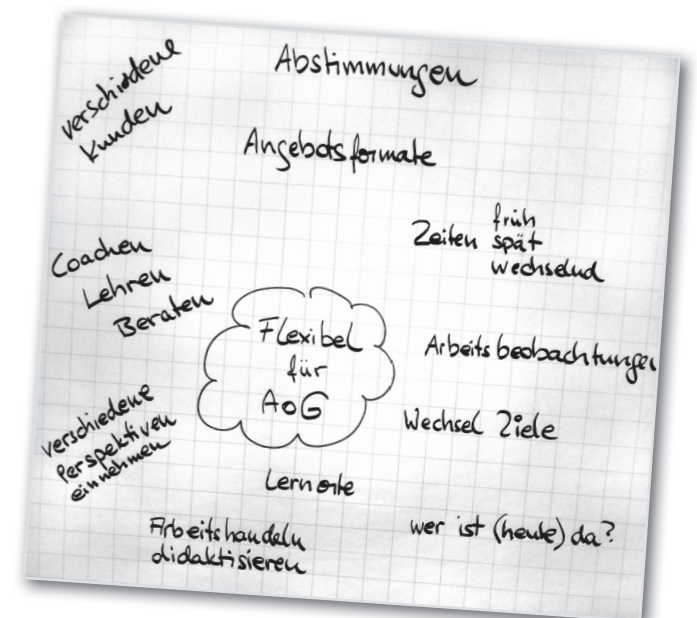 verschiedene
Kunden
Abstimmungen
Angebotsformate
Zeiten früh
spät
wechselnd
Coachen
Lehren
Beraten
Flexibel
für
AoG
Arbeitsbeobachtungen
Wechsel Ziele
verschiedene
Perspektiven
einnehmen
Lernorte
Arbeitshandeln
didaktisieren
wer ist (heute) da?